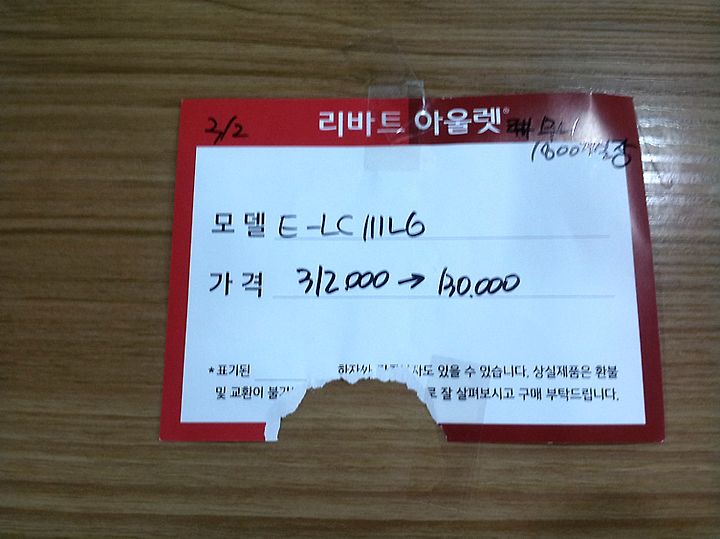 2/2 리바트 아울렛 무늬
1800 거실장
모델 E-LC111LG
가격 312.000 → 130.000
*표기된 도 있을 수 있습니다. 상실제품은 환불
및 교환이 잘 살펴보시고 구매 부탁드립니다.